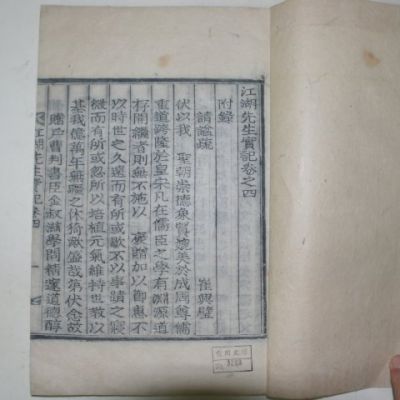 江湖先生實記卷之四
附錄
請諡疏 崔興璧
伏以我 聖朝崇德象賢媲美於成周尊儒
重道跨隆於皇宋凡在儒臣之學有淵源道
存開繼者則無不施以 褒贈加以卹惠不
以時世之久遠而有所或歇不以事蹟之寢
微而有所或忽所以培植元氣維持世敎以
基我億萬年無疆之休猗歟盛哉第伏念故
贈戶曹判書臣金叔滋學問精邃道德醇
江湖先生實記卷四 一